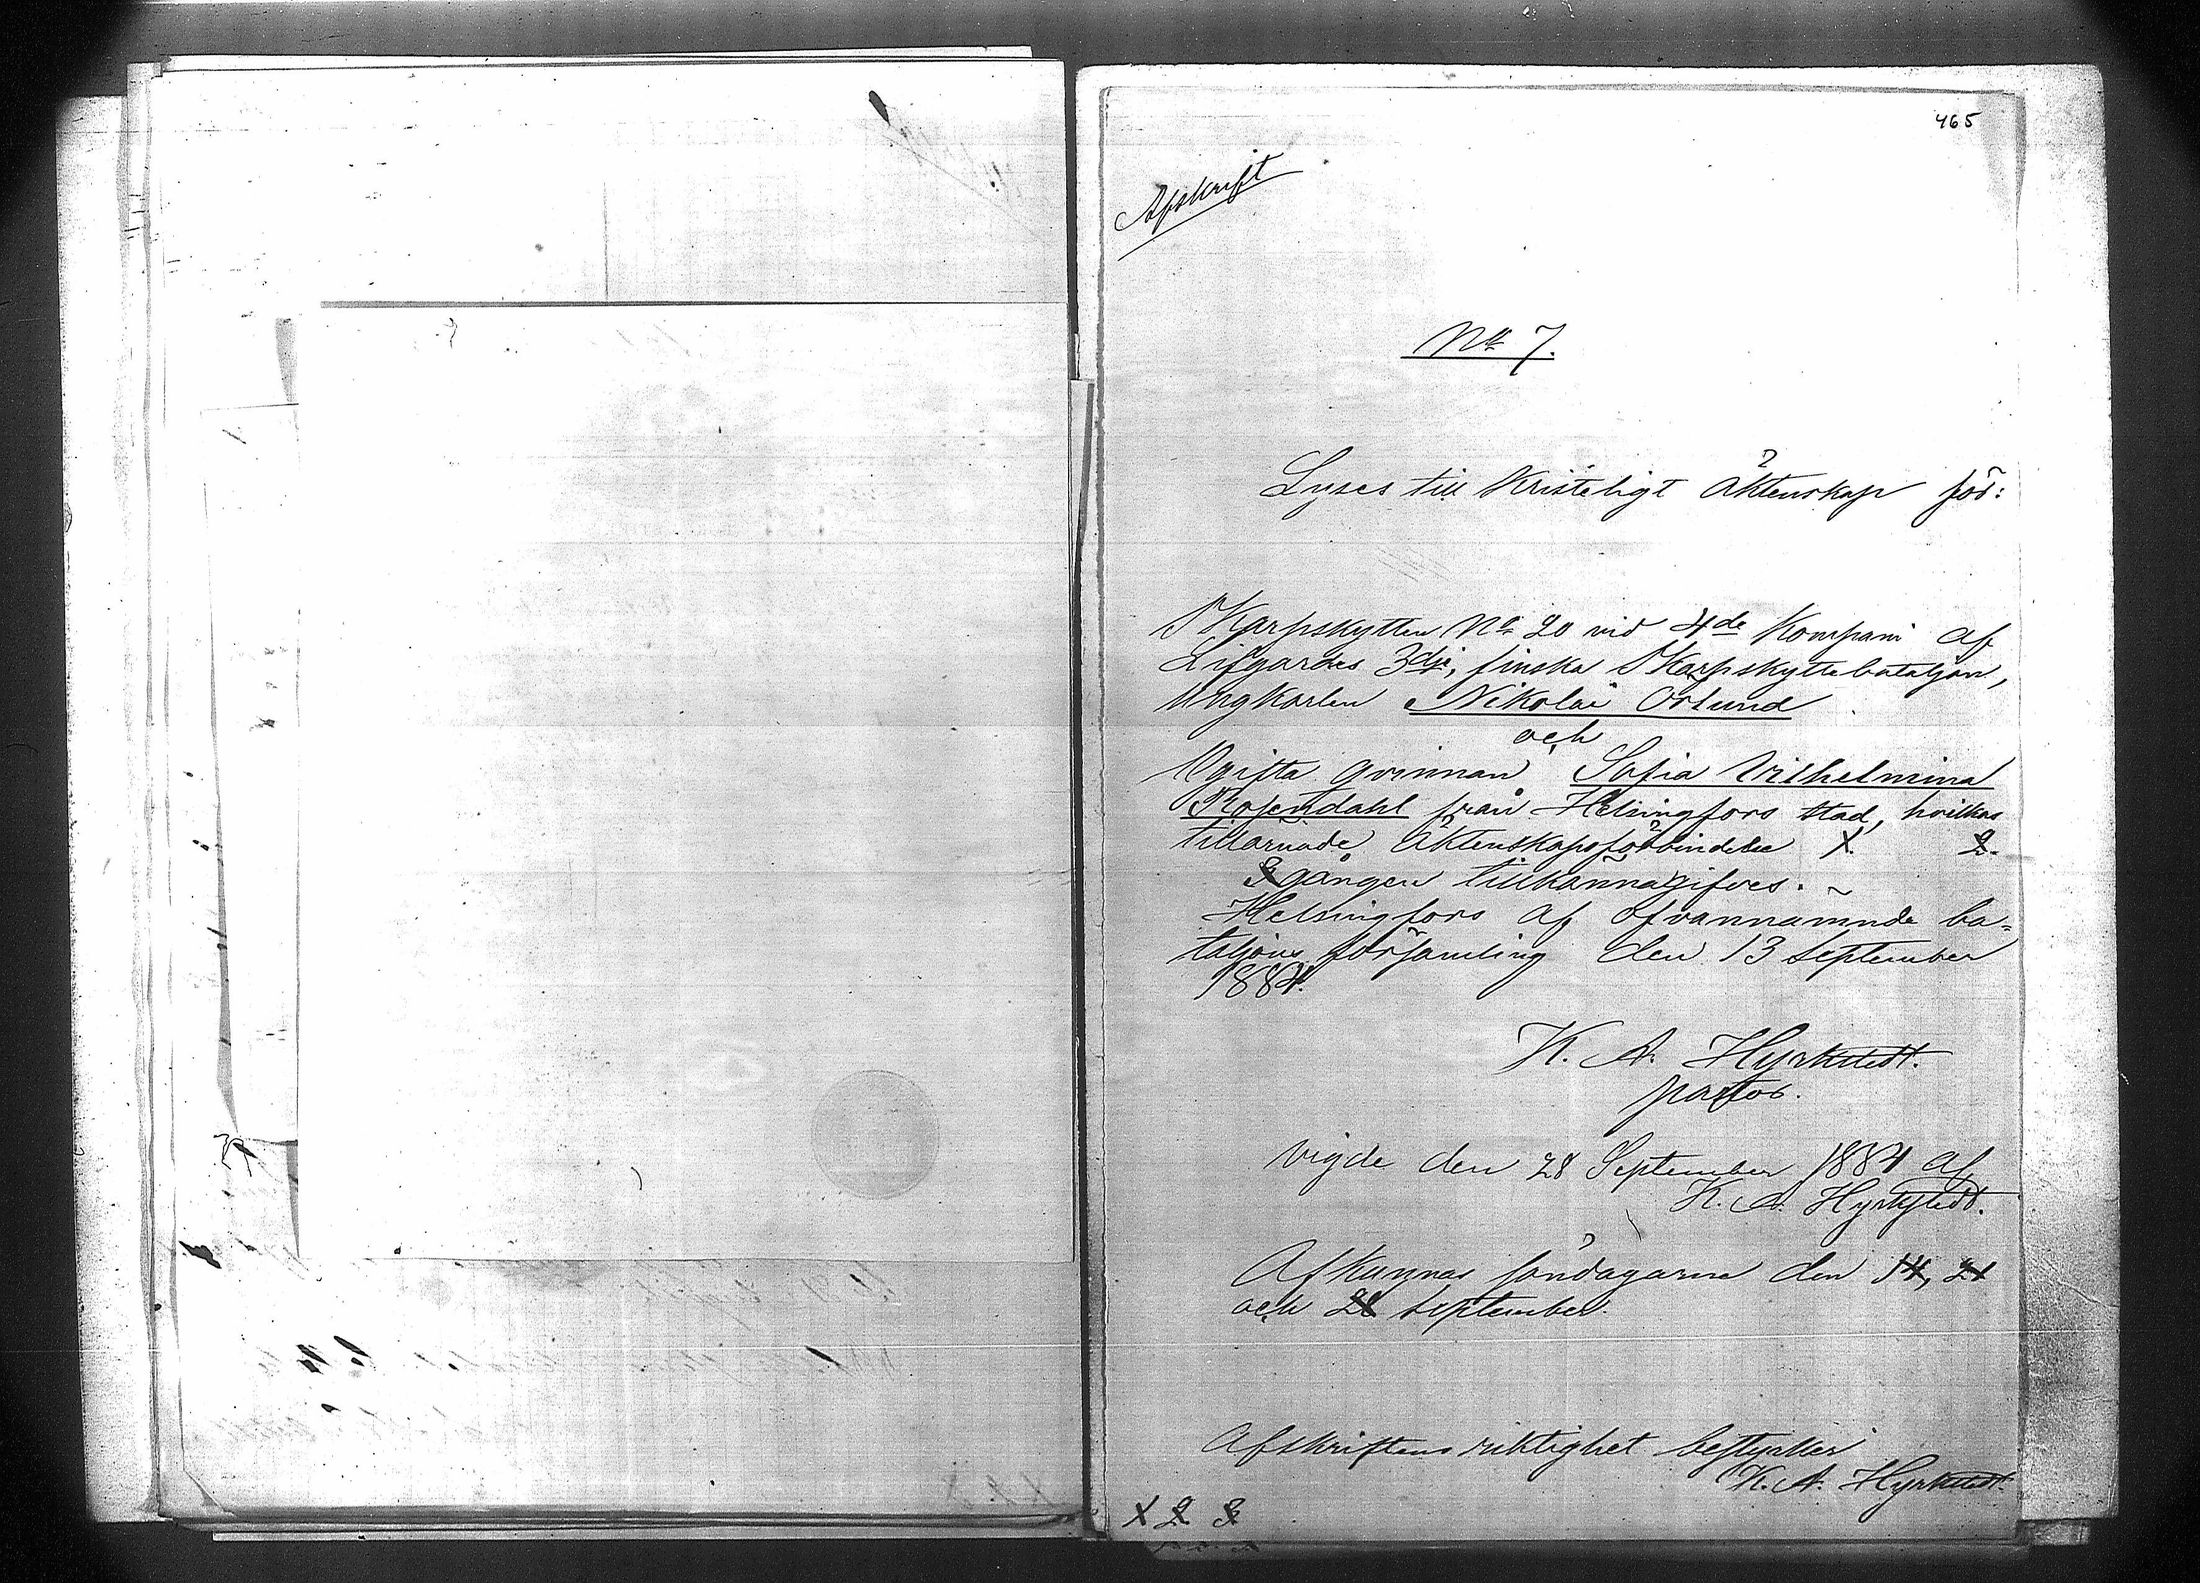 465
Afskrift
No 7.
Lyses till Kristeligt Äktenskap för:
Skarpskytten No 20 vid 4de Kompani af
Lifgardes 3dje, finska Skarpskyttebataljon,
Ungkarlen Nikolai Öslund
och
Ogifta qvinnan Sofia Vilhelmina
Rosendahl från Helsingfors stad, hvilkas
tillärnade Äktenskapsförbindelse 1. 2.
3 gången tillkännagifves. ~
Helsingfors af ofvannämnde ba=
taljons församling den 13 September
1884.
K. A. Hyrkstedt.
pastor.
Vigde den 28 September 1884 af
K. A. Hyrkstedt.
Afkunnas söndagarne den 14, 21
och 28 September.
Afskriftens riktighet bestyrker
K. A. Hyrkstedt.
1 2 3